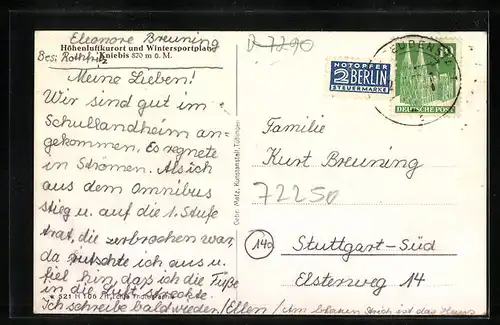 Eleonore Breuning
Höhenluftkurort und Wintersportplatz
Kniebis 870 m ü. M.
Bes: Rothfritz
Meine Lieben!
Wir sind gut im
Schullandheim an-
gekommen. Es regnete
in Strömen. Als ich
aus dem Omnibus
stieg u. auf die 1. Stufe
trat, die zerbrochen war,
da rutschte ich aus u.
fiel hin, daß ich die Füße
in die Luft streckte.
Ich schreibe bald wieder / Ellen / Am blauen Strich ist das Haus
★ 521 H
Gebr. Metz, Kunstanstalt, Tübingen
D 7290
NOTOPFER
2 BERLIN
STEUERMARKE
FREUDENSTADT
DEUTSCHE POST
Familie
Kurt Breuning
72250
14a
Stuttgart-Süd
Elsterweg 14